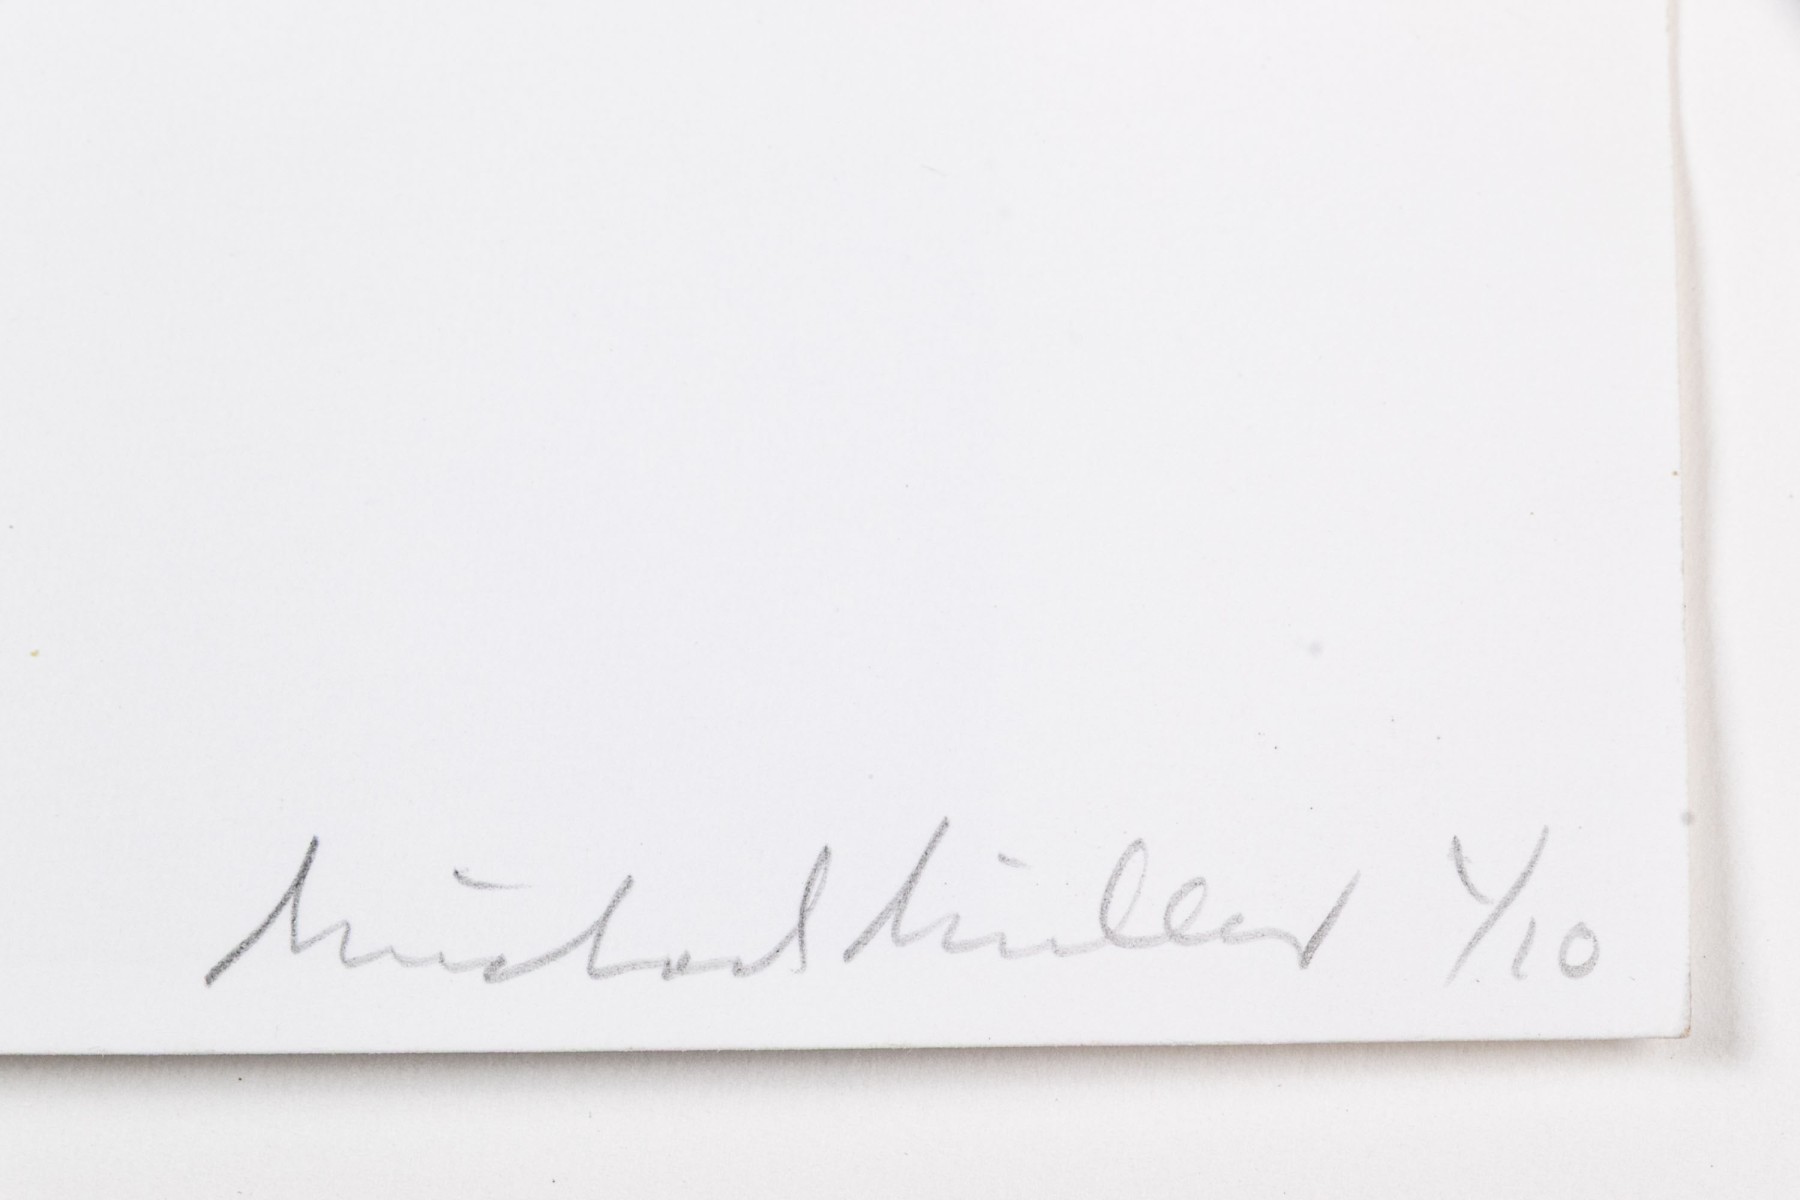 Michael Müller 1/10